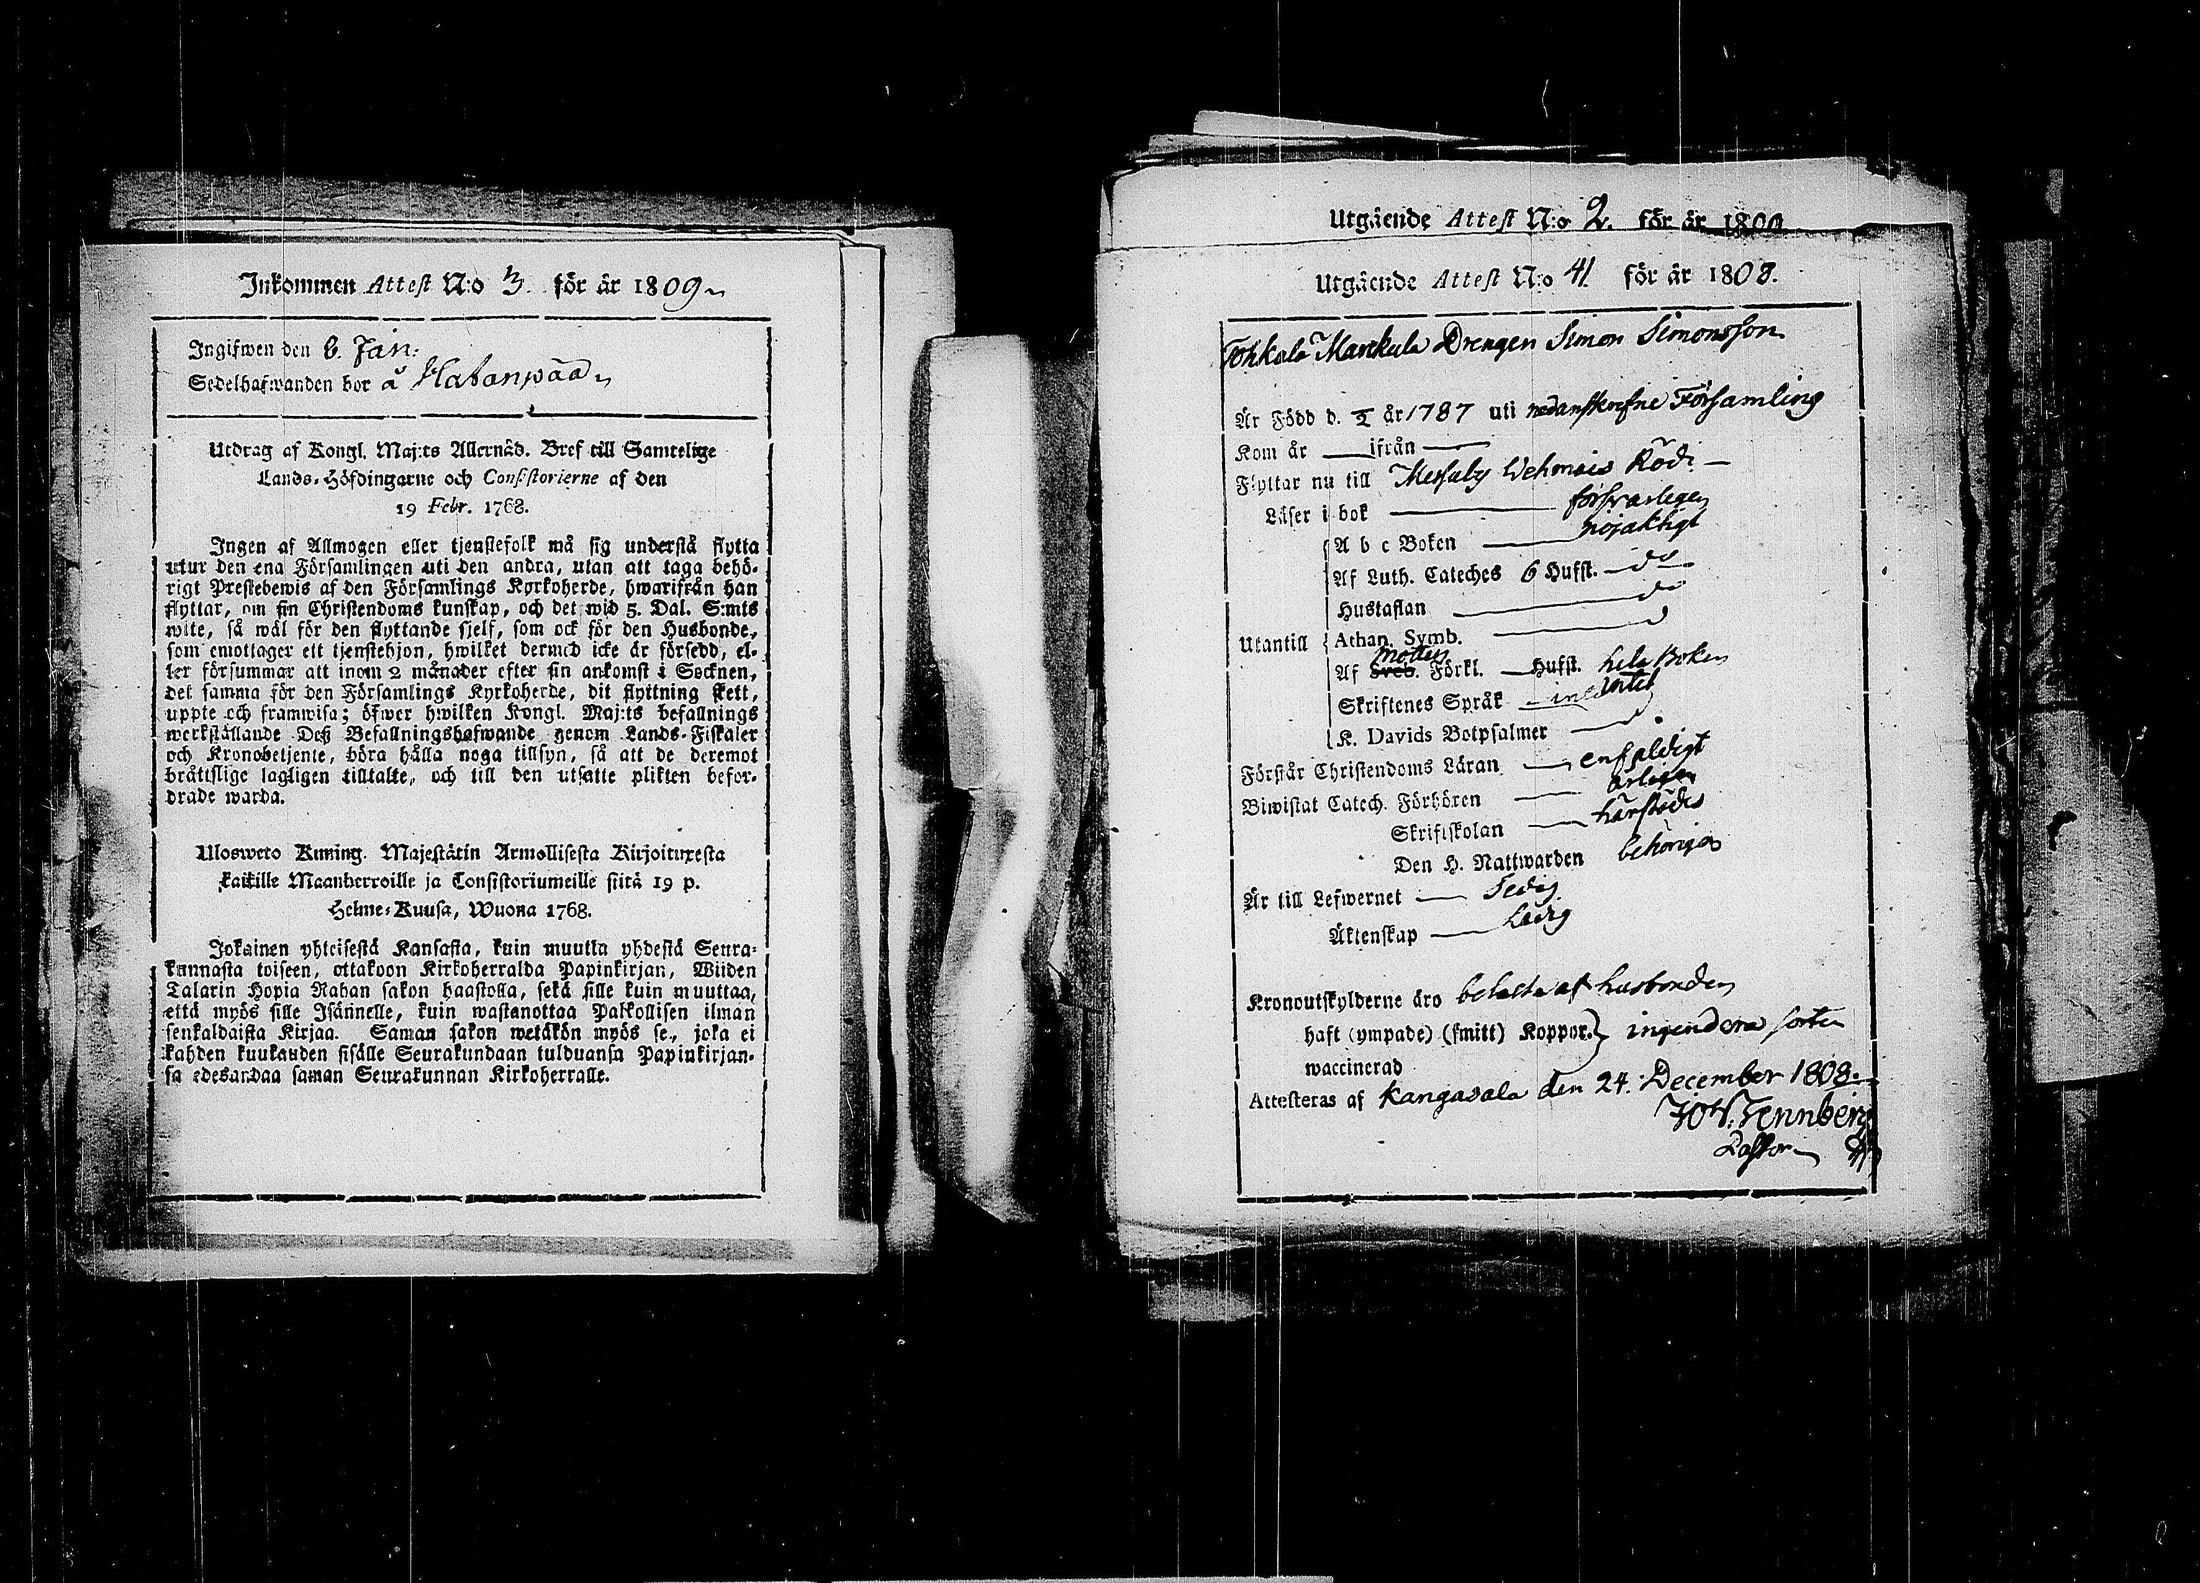 Inkommen Attest N:o 3. för år 1809
Ingifwen den 6. Jan:
Sedelhafwanden bor å Hatanpää
Utdrag af Kongl. Maj:ts Allernåd. Bref till Samtelige
Lands-Höfdingarne och Consistorierne af den
19 Febr. 1768.
Ingen af Allmogen eller tjenstefolk må sig understå flytta
utur den ena Församlingen uti den andra, utan att taga behö-
rigt Prestebewis af den Församlings Kyrkoherde, hwarifrån han
flyttar, om sin Christendoms kunskap, och det wid 5. Dal. S:mts
wite, så wäl för den flyttande sjelf, som ock för den Husbonde,
som emottager ett tjenstehjon, hwilket dermed icke är försedd, el-
ler försummar att inom 2 månader efter sin ankomst i Socknen,
det samma för den Församlings Kyrkoherde, dit flyttning skett,
uppte och framwisa; öfwer hwilken Kongl. Maj:ts befallnings
werkställande Deß Befallningshafwande genom Lands-Fiskaler
och Kronobetjente, böra hålla noga tillsyn, så att de deremot
bråttslige lagligen tilltalte, och till den utsatte plikten befor-
drade warda.
Ulosweto Kuning. Majestätin Armollisesta Kirjoituxesta
kaikille Maanherroille ja Consistoriumeille siitä 19 p.
Helme-Kuusa, Wuona 1768.
Jokainen yhteisestä Kansasta, kuin muutta yhdestä Seura-
kunnasta toiseen, ottakoon Kirkoherralda Papinkirjan, Wiiden
Talarin Hopia Rahan sakon haastolla, sekä sille kuin muuttaa,
että myös sille Isännelle, kuin wastanottaa Palkollisen ilman
senkaldaista Kirjaa. Saman sakon wetäkön myös se, joka ei
kahden kuukauden sisälle Seurakundaan tulduansa Papinkirjan-
sa edesandaa saman Seurakunnan Kirkoherralle.
Utgående Attest N:o 2. för år 1809
Utgående Attest N:o 41 för år 1808.
Tohkala Markula Drengen Simon Simonsson
Är Född d. år 1787 uti nedanskrefne Församling
Kom år ifrån
Flyttar nu till Messuby Wehmais
Läser i bok försvarligen
A b c Boken nöjaktigt
Af Luth. Cateches 6 Hufst. do
Hustaflan do
Utantill Athan. Symb.
Af Sveb. Förkl. Hufst. hela Boken
Skriftenes Språk intet
K. Davids Botpsalmer
Förstår Christendoms Läran enfaldigt
Biwistat Catech. Förhören årligen
Skriftskolan härstädes
Den H. Nattwarden behörigen
Är till Lefwernet Sedig
Äktenskap Ledig
Kronoutskylderne äro betalte af husbonden
haft (ympade) (smitt) Koppor. ingendera sorten
waccinerad
Attesteras af Kangasala den 24. December 1808.
Pastor